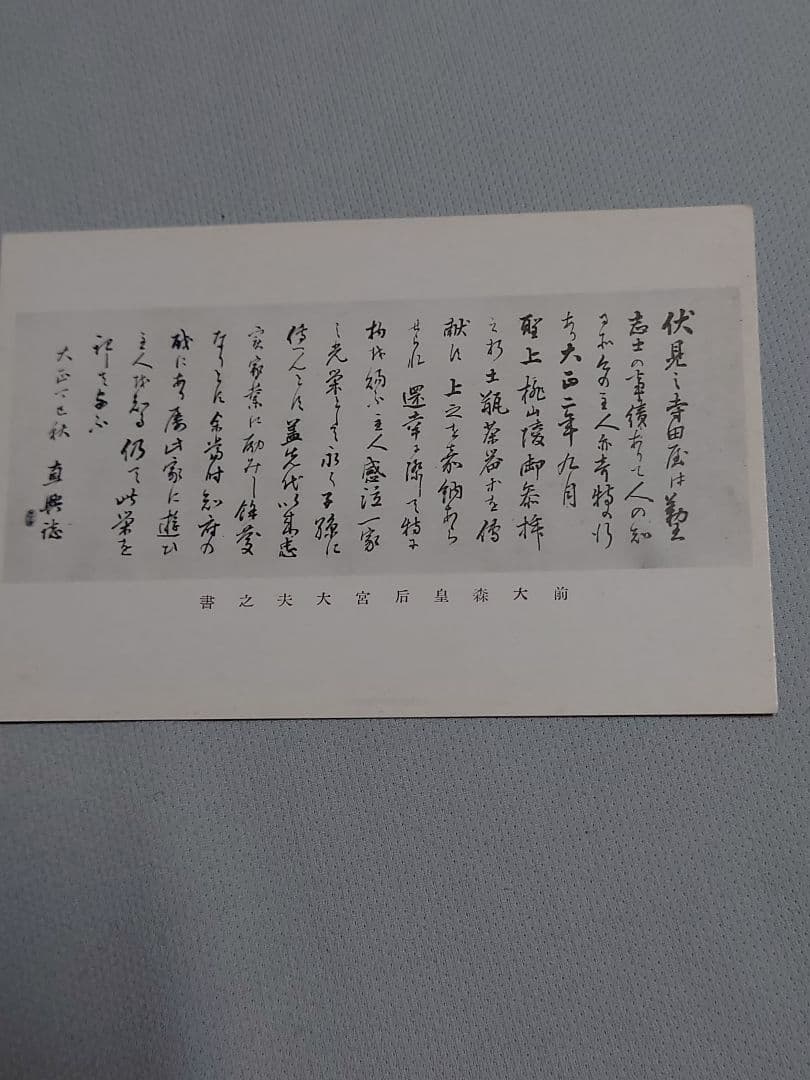 伏見之寺田屋は勤王
志士の事績ありて人の知
る所今の主人亦奇特の行
あり大正二年九月
聖上桃山陵御参拝
之折土瓶茶器を傳
献す上之を嘉納あら
せられ還幸に際して特に
物を賜ふ主人感泣一家
之光栄として永く子孫に
傳へんとす蓋先代以来忠
実家業に励みし餘慶
なりとす余当時知府の
職にあり屡此家に遊ひ
主人を知る仍て此栄を
記して与ふ
大正丁巳秋 直興誌
前大森皇后宮大夫之書